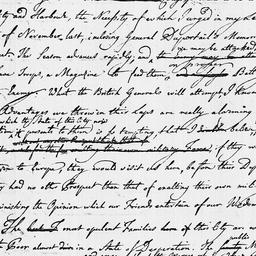 ty and Harbour, the Necessity of which I urged in my let
of November last, inclosing General Duportail's Memor
The Season advanced rapidly, and a
ye may be attacked,
Troops, a Magazine to feed them, Batt
Enemy. What the British Generals will attempt, I know
Advantages we throw in their Laps are really alarming
which the State of this City now
present to them is so tempting, that I believe,
if they w
to Europe, they would visit us here, before their Dep
they had no other Prospect than that of exalting their own mili
minishing the Opinion which our Friends entertain of our Wisdom
The most opulent Families of this City are
Poor almost in a State of Desperation. The